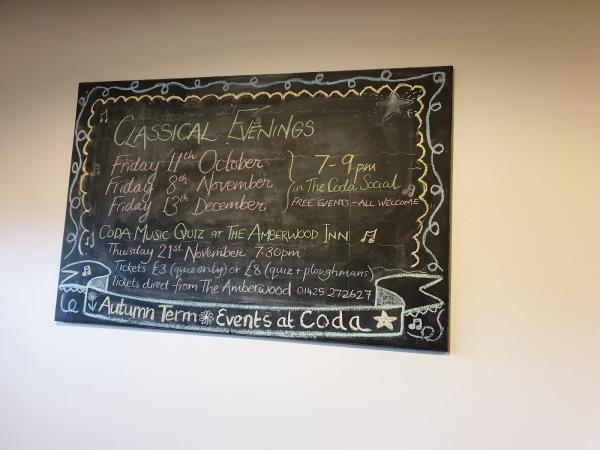 CLASSICAL EVENINGS
Friday 11th October
Friday 8th November
Friday 13th December
7-9pm
in The Coda Social
FREE EVENTS - ALL WELCOME
CODA MUSIC QUIZ AT THE AMBERWOOD INN
Thursday 21st November 7.30pm
Tickets £3 (quiz only) or £8 (quiz + ploughmans)
Tickets direct from The Amberwood 01425 272627
Autumn Term Events at Coda